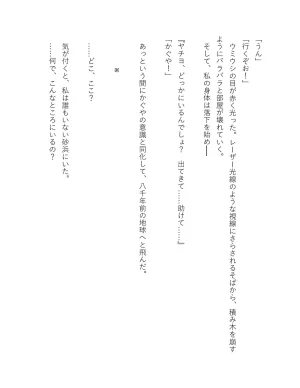 「うん」
「行くぞお！」
　ウミウシの目が赤く光った。レーザー光線のような視線にさらされるそばから、積み木を崩す
ようにバラバラと部屋が壊れていく。
　そして、私の身体は落下を始め――
『ヤチヨ、どっかにいるんでしょ？　出てきて……助けて……』
「かぐや！」
　あっという間にかぐやの意識と同化して、八千年前の地球へと飛んだ。
＊
　……どこ、ここ？
　気が付くと、私は誰もいない砂浜にいた。
　……何で、こんなところにいるの？